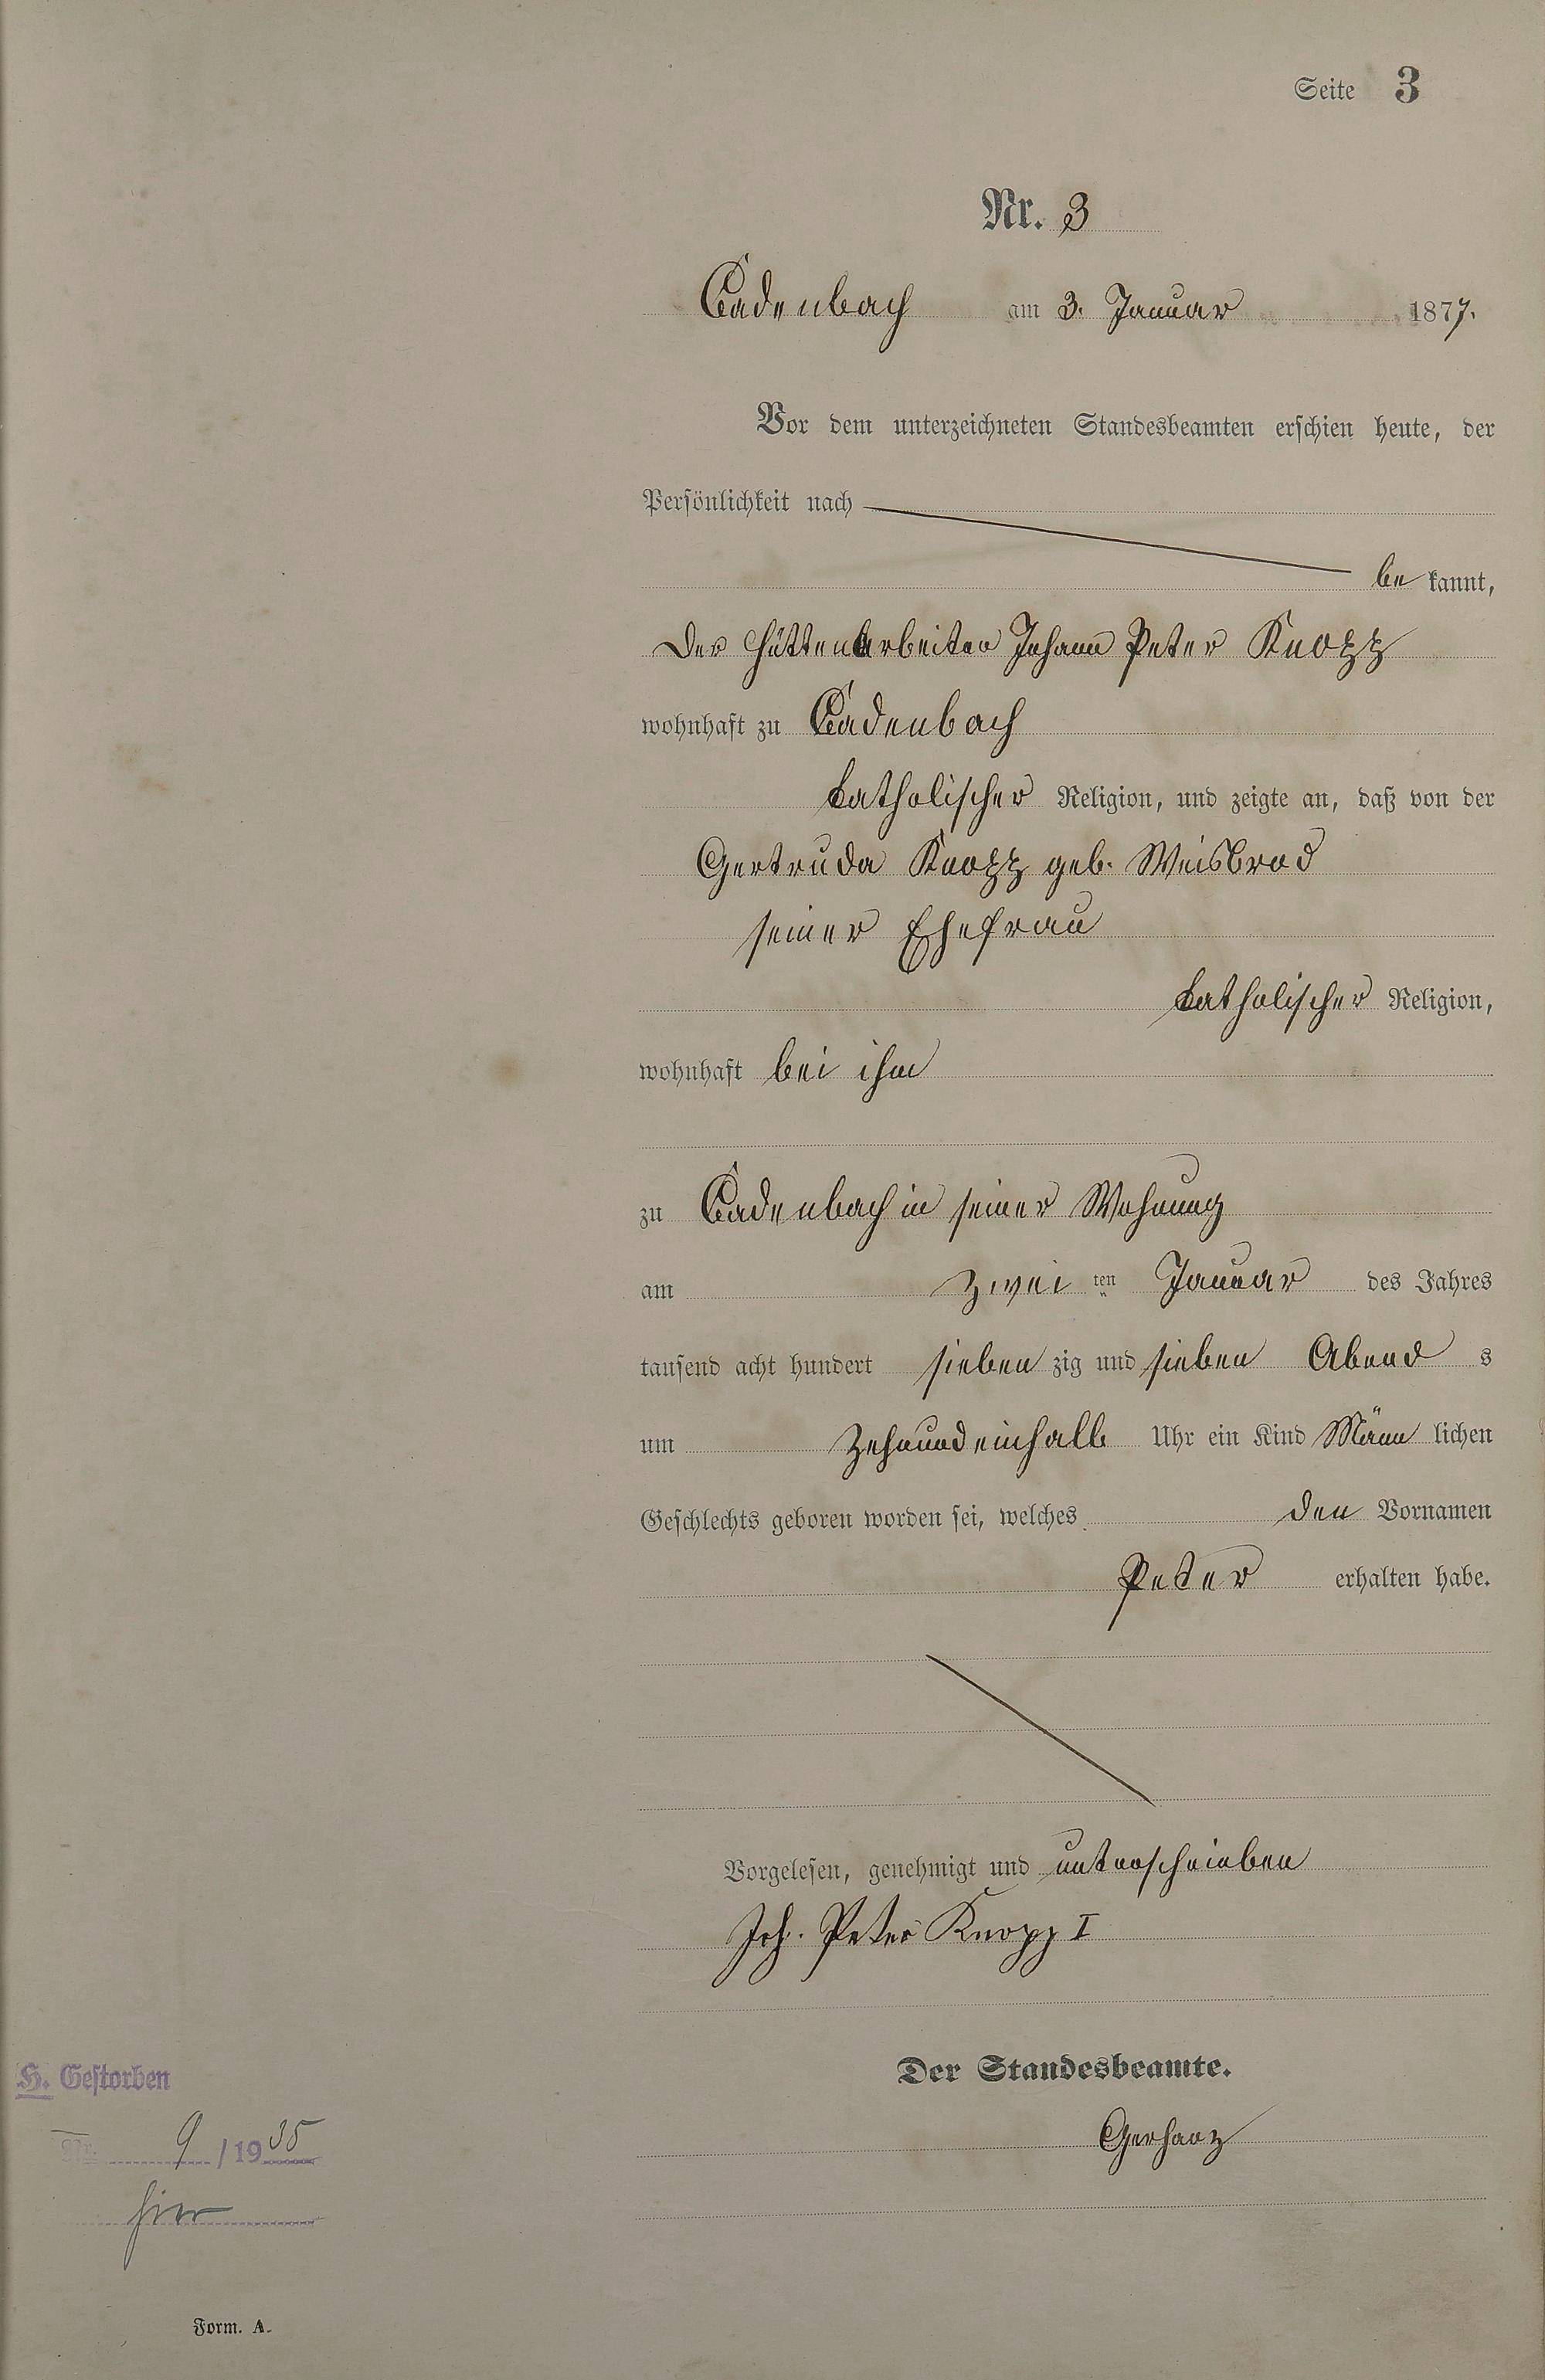 Seite 3
Nr. 3
Cadenbach am 3. Januar 1877.
Vor dem unterzeichneten Standesbeamten erschien heute, der
Persönlichkeit nach
be kannt,
der Hüttenarbeiter Johann Peter Knopp
wohnhaft zu Cadenbach
katholischer Religion, und zeigte an, daß von der
Gertruda Knopp geb. Weisbrod
seiner Ehefrau
katholischer Religion,
wohnhaft bei ihm
zu Cadenbach in seiner Wohnung
am zwei ten Januar des Jahres
tausend acht hundert sieben zig und sieben Abend s
um Zehnundeinhalb Uhr ein Kind Männ lichen
Geschlechts geboren worden sei, welches den Vornamen
Peter erhalten habe.
Vorgelesen, genehmigt und unterschrieben
Joh. Peter Knopp I
Der Standesbeamte.
Gerharz
H. Gestorben
Nr. 9/1935
hier
Form. A.